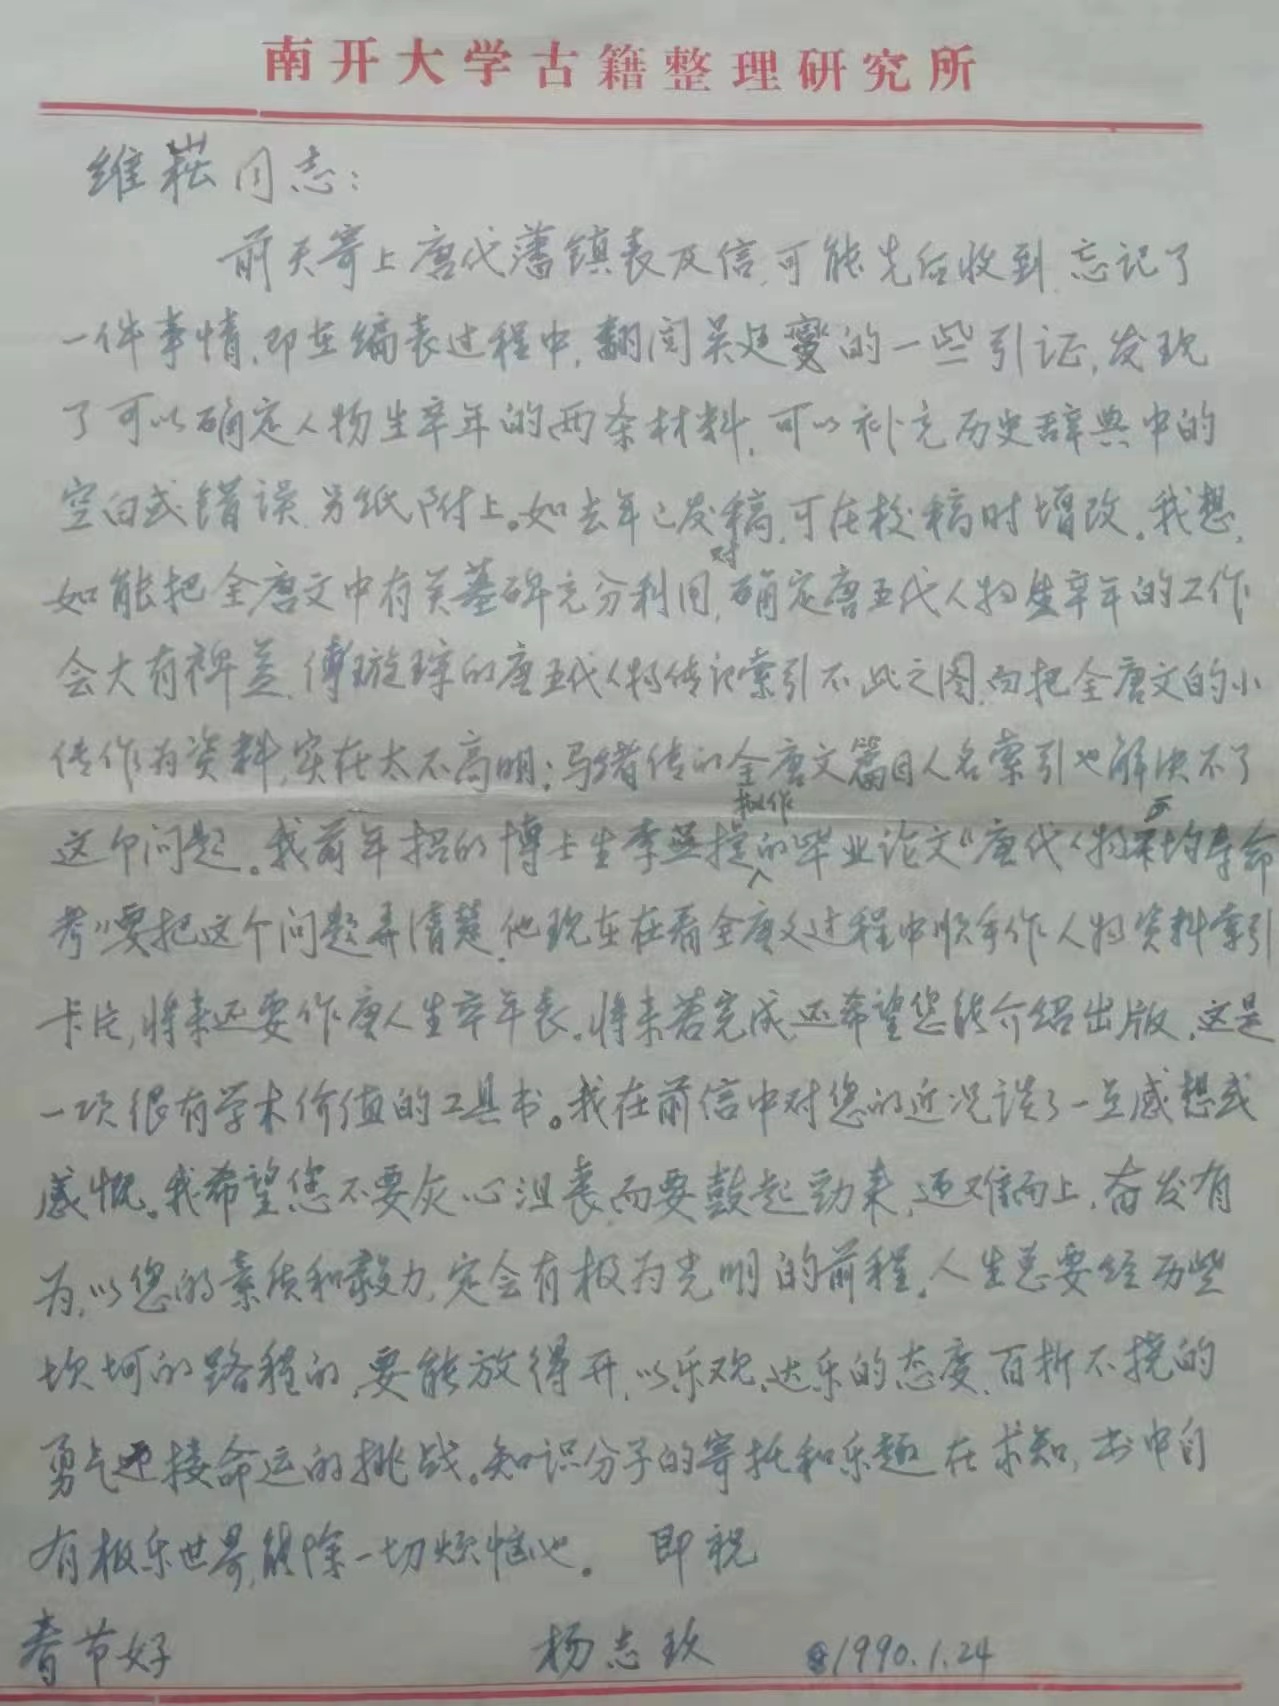 南开大学古籍整理研究所
维菘同志：
前天寄上唐代藩镇表及信，可能先后收到，忘记了
一件事情，即在编表过程中，翻阅吴廷燮的一些引证，发现
了可以确定人物生卒年的两条材料，可以补充历史辞典中的
空白或错误，另纸附上。如去年已发稿，可在校稿时增改。我想，
如能把全唐文中有关墓碑充分利用，对确定唐五代人物生卒年的工作
会大有裨益，傅璇琮的唐五代人物传记索引不此之图，而把全唐文的小
传作为资料，实在太不高明；马绪传的全唐文篇目人名索引也解决不了
这个问题。我前年招的博士生李燕捷拟作的毕业论文“唐代人物平均寿命
考”要把这个问题弄清楚，他现在在看全唐文过程中顺手作人物资料索引
卡片，将来还要作唐人生卒年表。将来若完成，还希望您能介绍出版，这是
一项很有学术价值的工具书。我在前信中对您的近况谈了一点感想或
感慨。我希望您不要灰心沮丧，而要鼓起劲来，迎难而上，奋发有
为，以您的素质和毅力，定会有极为光明的前程。人生总要经历些
坎坷的路程的，要能放得开，以乐观、达乐的态度，百折不挠的
勇气迎接命运的挑战。知识分子的寄托和乐趣在求知，书中自
有极乐世界，能除一切烦恼也。 即祝
春节好 杨志玖 1990.1.24